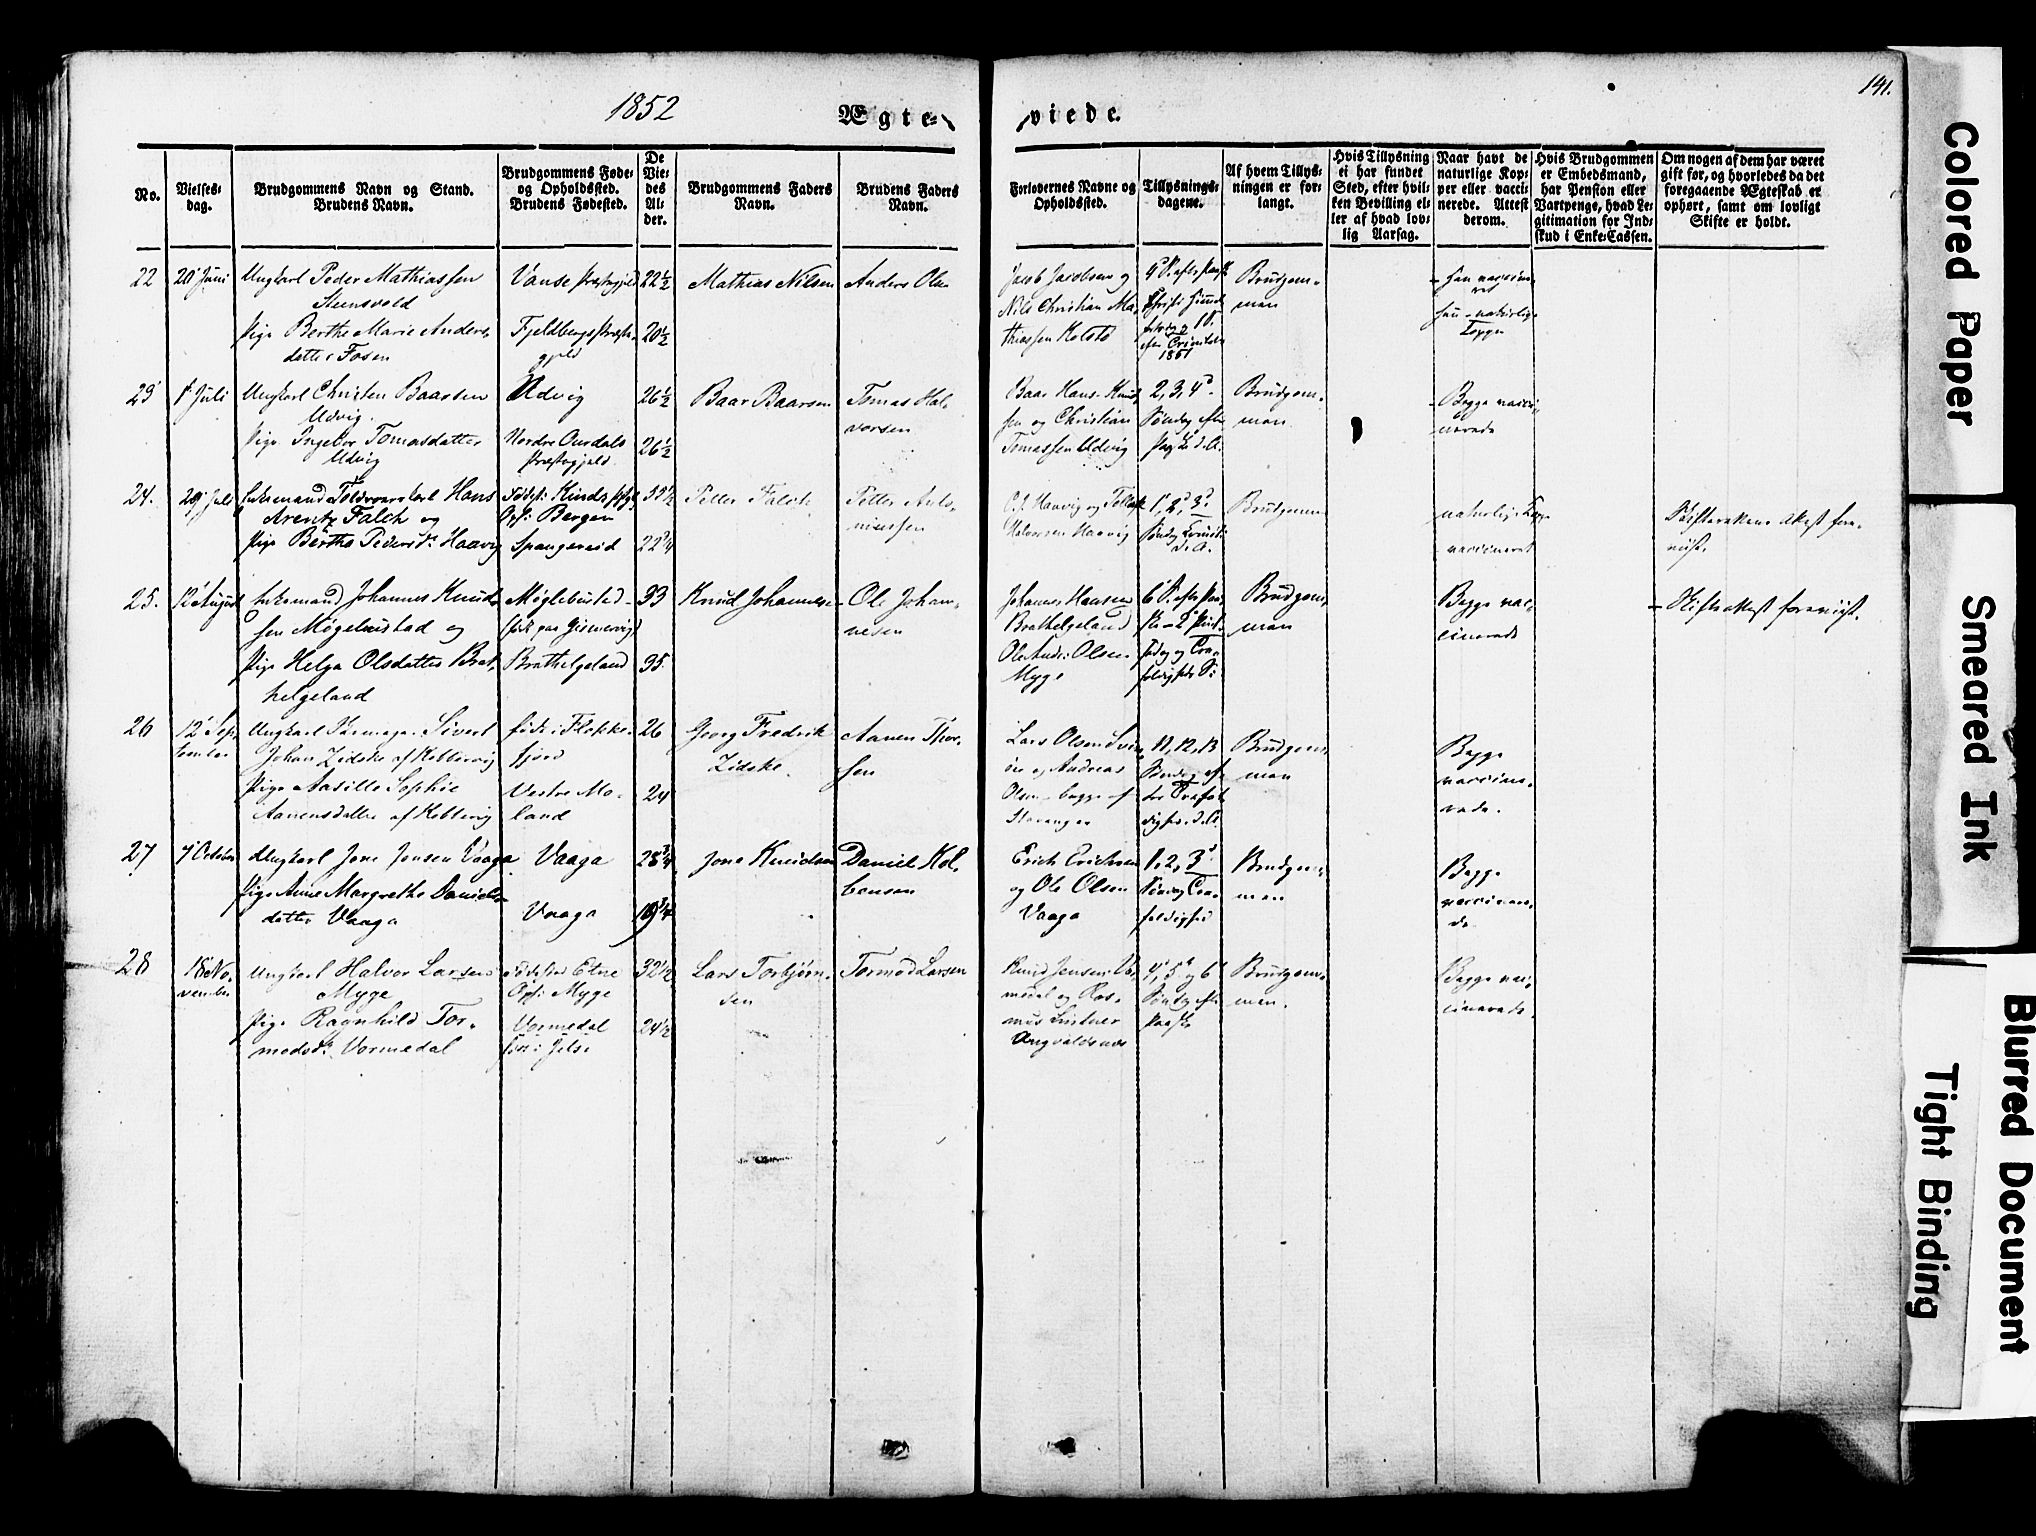 1852
Ægte- viede.
141.
No.
Vielses-
dag.
Brudgommens Navn og Stand.
Brudens Navn.
Brudgommens Føde-
og Opholdssted.
Brudens Fødested.
De
Vie-
des
Al-
der.
Brudgommens Faders
Navn.
Brudens Faders
Navn.
Forlovernes Navne og
Opholdssted.
Tillysnings-
dagene.
Af hvem Tillys-
ningen er for-
langt.
Hvis Tillysning
ei har fundet
Sted, efter hvil-
ken Bevilling el-
ler af hvad lov-
lig Aarsag.
Naar havt de
naturlige Kop-
per eller vacci-
nerede. Attest
derom.
Hvis Brudgommen
er Embedsmand,
har Pension eller
Vartpenge, hvad Le-
gitimation for Ind-
skud i Enke-Cassen.
Om nogen af dem har været
gift før, og hvorledes da det
foregaaende Ægteskab er
ophørt, samt om lovligt
Skifte er holdt.
22
20 Juni
Ungkarl Peder Mathiassen
Steinsvold
Pige Berthe Marie Anders-
datter Fosen
Vanse Præstegjeld
Fjeldbergs Præste-
gjeld
22½
20½
Mathias Nilsen
Anders Olsen
Jacob Jacobsen og
Nils Christian Ma-
thiassen Kolstø
1851
Brudgom-
man
naturlige
Kopper
23
1 Juli
Ungkarl Christen Baarsen
Udvig.
Pige Ingebor Tomasdatter
Udvig
Udvig
Nordre Ourdals
Præstegjeld
26½
26½
Baar Baarsen
Tomas Hal-
vorsen
Baar Hans Knud-
sen og Christian
Tomassen Udvig
2, 3, 4
Søndag efter
Brudgom-
man
Begge vacci-
nerede
24.
29 Juli
Enkemand Toldroerskarl Hans
Arentz Falch og
Pige Berthe Pedersd. Haavig
Bergen
Spangereid
22¾
Petter Falch
Petter
Halvorsen Haavig
1, 2, 3
Brudgommen
naturlige Kopper
vaccineret
25.
12 August
Enkemand Johannes Knud-
sen Møgelbustad og
Pige Helga Olsdatter Brat-
helgeland
Møglebustad
Brathelgeland
33
35
Knud Johannesen
Ole Johan-
nesen
Johannes Hansen
Brathelgeland
Ole Andr. Olsen
Myge
Brudgom-
man
Begge vac-
cinerede
Skifteattest foreviist.
26
12 Sep-
tember
Ungkarl Sivert
Johan Zidske af Kobbervig
Pige Aasille Sophie
Aanensdatter af Kobbervig
født i Flekke-
fjord
Vestre Mo-
land
26
24
Georg Fredrik
Zidske
Aanen Thor-
sen
Lars Olsen
og Andreas
Olsen begge af
Stavanger
11, 12, 13
Søndag ef-
ter Trefol-
dighed
Brudgom-
man
Begge
vaccine-
rede.
27
7 October
Ungkarl Jone Jonsen Vaaga
Pige Anne Margrethe Daniels-
datter Vaaga
Vaaga
Vaaga
28¾
19¾
Jone Knudsen
Daniel Kol-
bensen
Erich Erichsen
og Ole Olsen
Vaaga
1, 2, 3
Søndag Tre-
foldighed
Brudgom-
man
Begge
vaccinere-
de
28
18 No-
vember
Ungkarl Halvor Larsen
Myge
Pige Ragnhild Tor-
modsd. Vormedal
Fødested Etne
Oph: Myge
Vormedal
født i Jelse
32½
24½
Lars Torbjørn-
sen
Tormod Larsen
Knud Jensen Vor-
medal og Ras-
mus Lintner
Augvaldsnes
4, 5 og 6
Søndag efter
Paaske
Brudgom-
man.
Begge vac-
cinerede.
Colored Paper
Smeared Ink
Blurred Document
Tight Binding